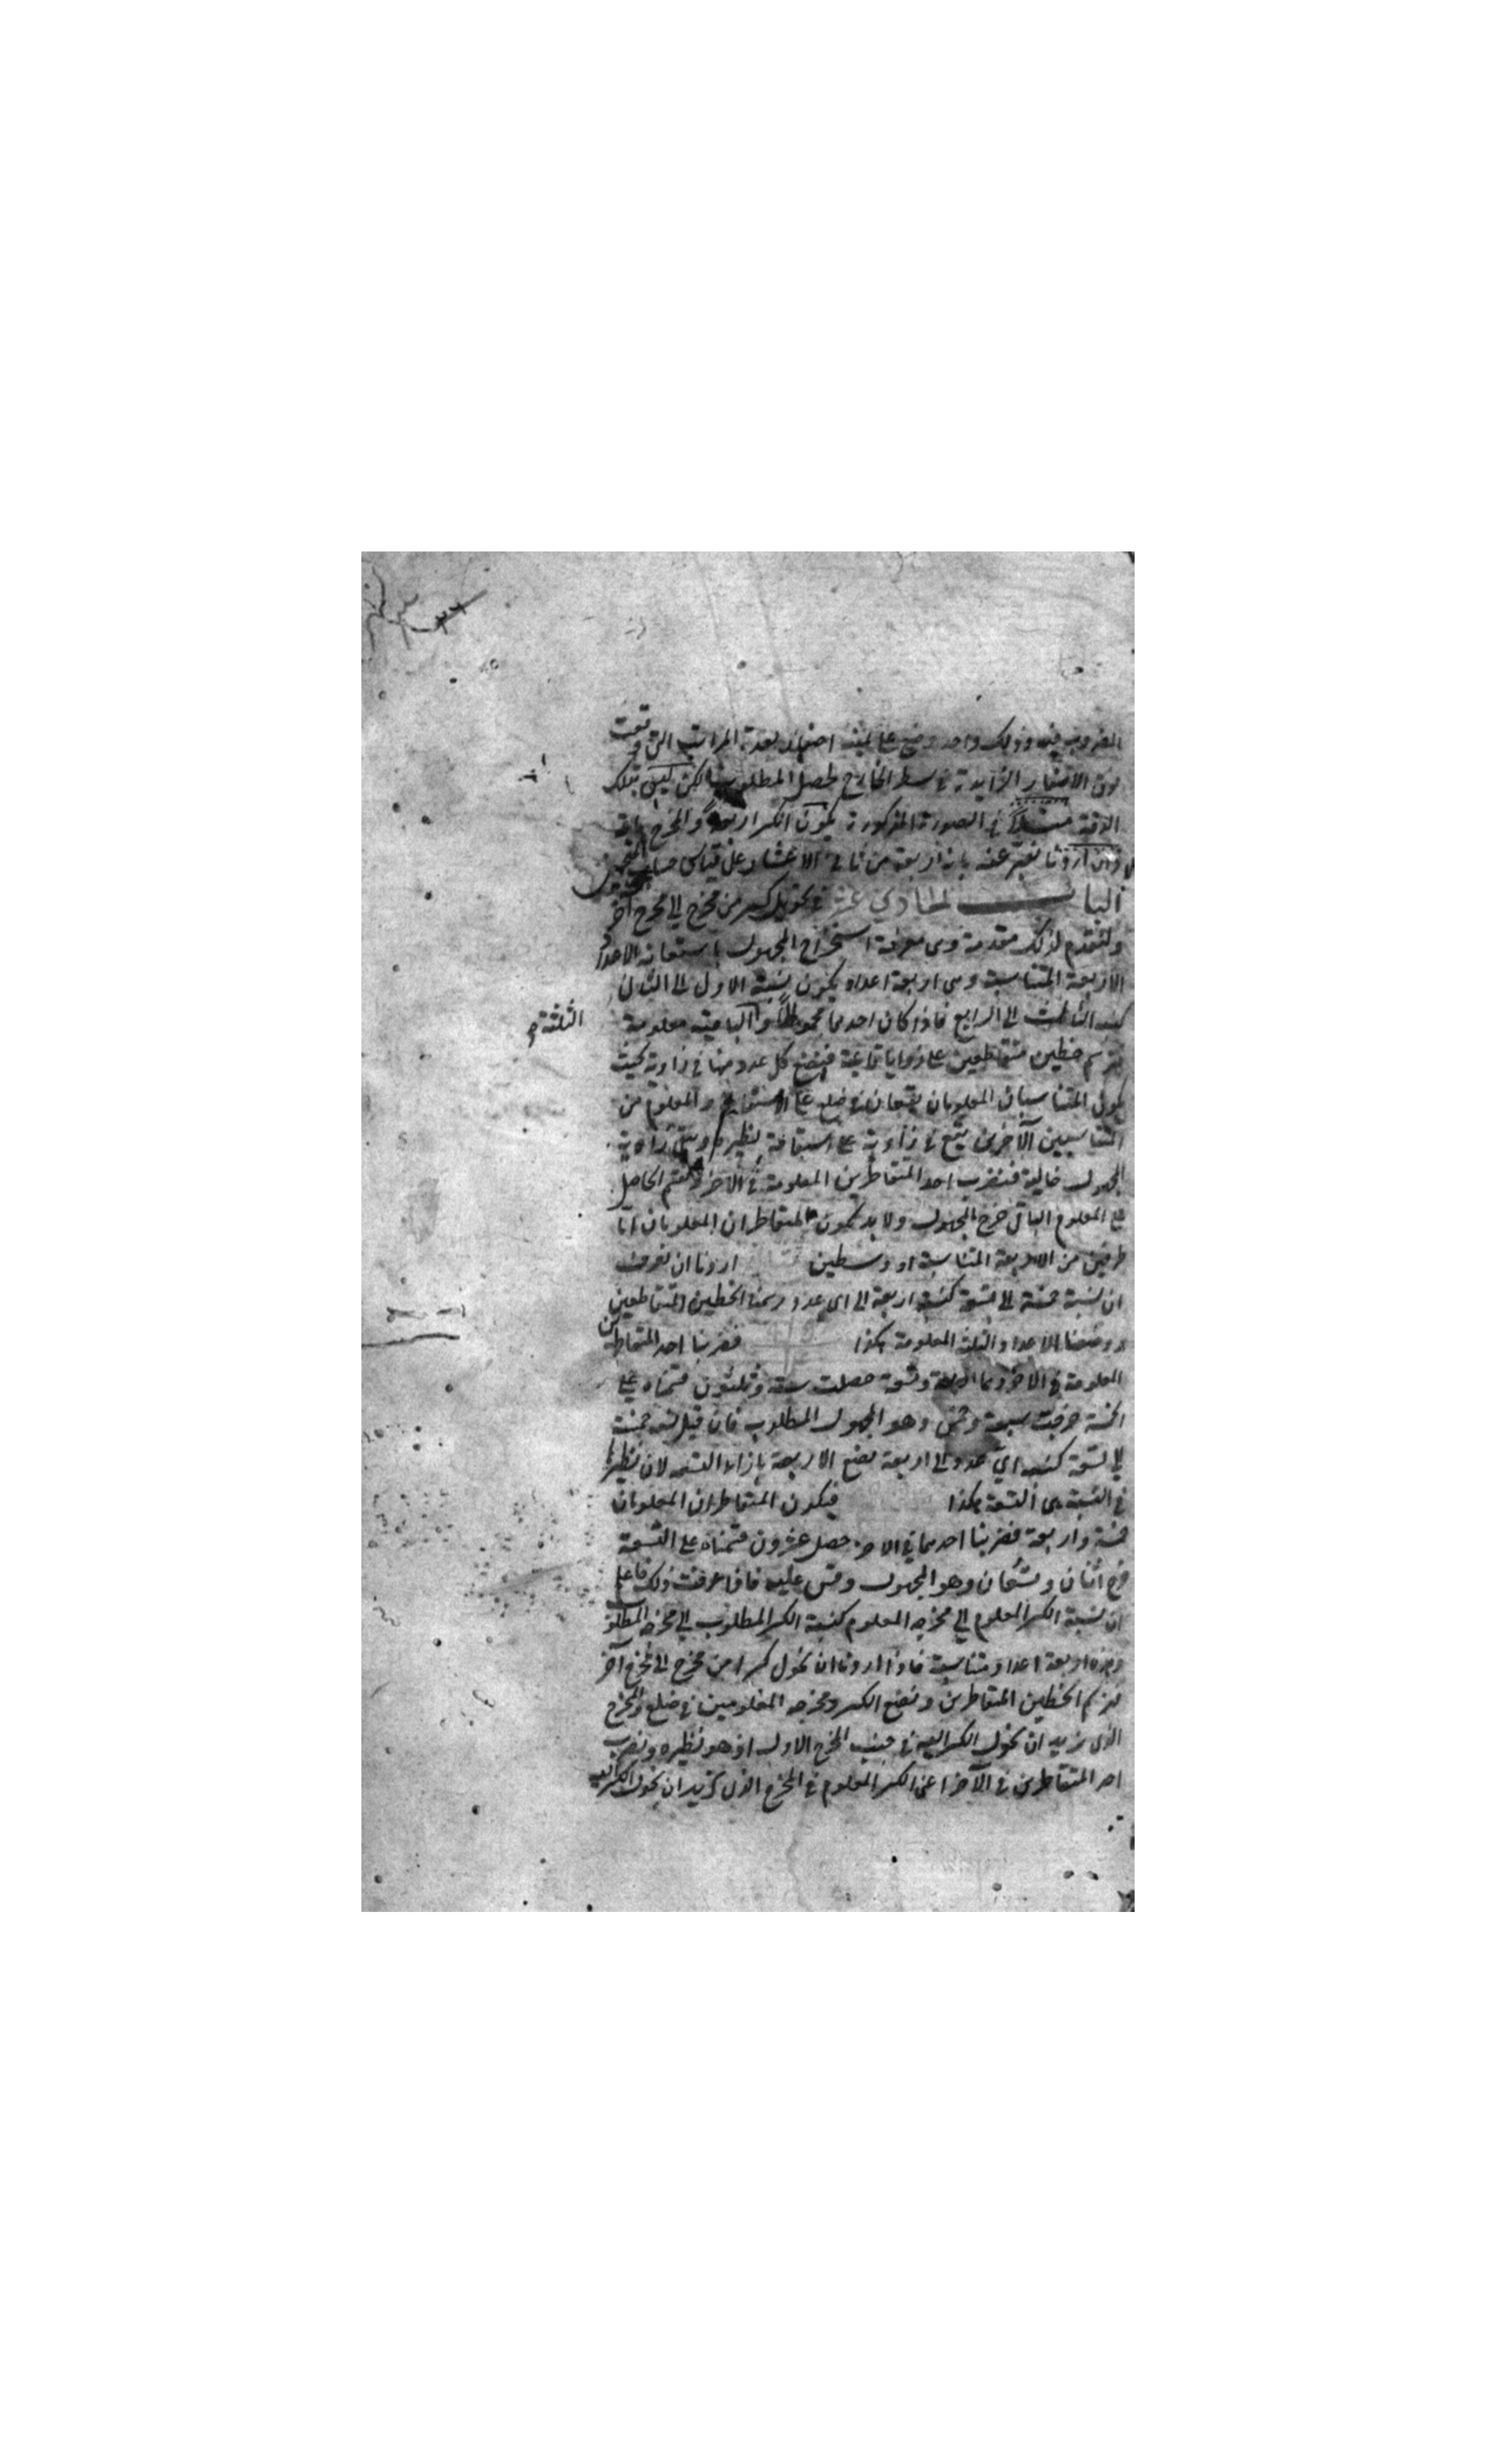 المضروب فيه وذلك واحد وضع على يمينه اصفار بعدة المراتب التي وقعت
فوق الاصفار الزايدة في سطر الخارج لحصل المطلوب لكن ليس بتلك
الدقة مثلاً في الصورة المذكورة يكون الكسر اربعة والمخرج
وان اردنا نعبر عنه بانه اربعة من ثاني الاعشار على قياس حساب المنجمين
الباب الحادي عشر في تحويل كسر من مخرج الى مخرج آخر
ولنقدم لذلك مقدمة وهى معرفة استخراج المجهول باستعانة الاعداد
الاربعة المتناسبة وهى اربعة اعداد يكون نسبة الاول الى الثانى
كنسبة الثالث الى الرابع فاذا كان احدها مجهولاً والباقية معلومة
الثلثة
نرسم خطين متقاطعين على زوايا قايمة فنضع كل عدد منها في زاوية بحيث
يكون المتناسبان المعلومان يقعان في ضلع على الاستقامة والمعلوم من
المتناسبين الآخرين يقع في زاوية على استقامة نظيره وبقى زاوية
المجهول خالية فنضرب احد المتقاطرين المعلومة في الآخر ونقسم الحاصل
على المعلوم الباقى خرج المجهول ولا بد يكون المتقاطران المعلومان اما
طرفين من الاربعة المتناسبة او وسطين اردنا ان نعرف
ان نسبة خمسة الى تسعة كنسبة اربعة الى اى عدد رسمنا الخطين المتقاطعين
ووضعنا الاعداد الثلثة المعلومة هكذا فضربنا احد المتقاطرين
المعلومة في الآخر وهما اربعة وتسعة حصلت ستة وثلثون قسمناه على
الخمسة خرجت سبعة وخمس وهو المجهول المطلوب فان قيل نسبة خمسة
الى تسعة كنسبة اى عدد الى اربعة نضع الاربعة بازاء التسعة لان نظيرها
في النسبة هى التسعة هكذا فيكون المتقاطران المعلومان
خمسة واربعة فضربنا احدهما في الآخر حصل عشرون قسمناه على التسعة
خرج اثنان وتسعان وهو المجهول وقس عليه فاذا عرفت ذلك فاعلم
ان نسبة الكسر المعلوم الى مخرجه المعلوم كنسبة الكسر المطلوب الى مخرجه المطلوب
وهذه اربعة اعداد متناسبة فاذا اردنا ان نحول كسرا من مخرج الى مخرج آخر
نرسم الخطين المتقاطرين ونضع الكسر ومخرجه المعلومين في ضلع والمخرج
الذى نريد ان نحول الكسر اليه في جنب المخرج الاول اذ هو نظيره ونضرب
احد المتقاطرين في الآخر اعنى الكسر المعلوم في المخرج الذى نريد ان نحول الكسر اليه